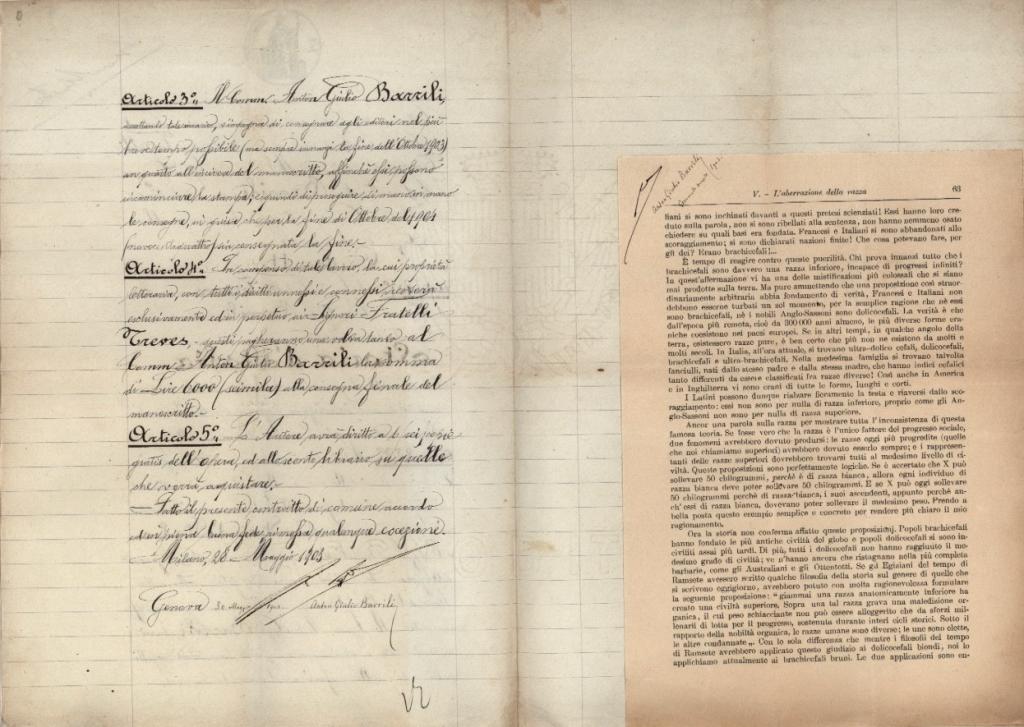 Articolo 3º. Il Comm. Anton Giulio Barrili,
accettando tale incarico, s'impegna di consegnare agli editori nel più
breve tempo possibile (ma sempre innanzi la fine dell'Ottobre 1903)
un quarto all'incirca del manoscritto, affinché essi possano
incominciare la stampa; e quindi di proseguire di mano in mano
le consegne, in guisa che per la fine di Ottobre del 1904
(novecentoquattro) sia consegnata la fine.-
Articolo 4º. In compenso di tale lavoro, la cui proprietà
letteraria, con tutti i diritti annessi e connessi, resterà
esclusivamente ed in perpetuo ai Signori Fratelli
Treves, questi pagheranno una volta tanto al
Comm. Anton Giulio Barrili la somma
di Lire 6000 (seimila) alla consegna finale del
manoscritto.-
Articolo 5º. L'Autore avrà diritto a 6 sei copie
gratis dell'opera, ed allo sconto librario su quelle
che vorrà acquistare.-
Fatto il presente contratto di comune accordo
ed in piena buona fede, rimossa qualunque eccezione.
Milano, 28 Maggio 1903
Genova Anton Giulio Barrili
Anton Giulio Barrili
V. - L'aberrazione della razza 63
liani si sono inchinati davanti a questi pretesi scienziati! Essi hanno loro cre-
duto sulla parola, non si sono ribellati alla sentenza, non hanno nemmeno osato
chiedere su quali basi era fondata. Francesi e Italiani si sono abbandonati allo
scoraggiamento; si sono dichiarati nazioni finite! Che cosa potevano fare, per
gli dei? Erano brachicefali!...
È tempo di reagire contro queste puerilità. Chi prova innanzi tutto che i
brachicefali sono davvero una razza inferiore, incapace di progressi infiniti?
In quest'affermazione vi ha una delle mistificazioni più colossali che si siano
mai prodotte sulla terra. Ma pure ammettendo che una proposizione così straor-
dinariamente arbitraria abbia fondamento di verità, Francesi e Italiani non
debbono esserne turbati un sol momento, per la semplice ragione che nè essi
sono brachicefali, nè i nobili Anglo-Sassoni sono dolicocefali. La verità è che
dall'epoca più remota, cioè da 300 000 anni almeno, le più diverse forme cra-
niche coesistono nei paesi europei. Se in altri tempi, in qualche angolo della
terra, esistessero razze pure, è ben certo che più non ne esistono da molti e
molti secoli. In Italia, all'ora attuale, si trovano ultra-dolico cefali, dolicocefali,
brachicefali e ultra-brachicefali. Nella medesima famiglia si trovano talvolta
fanciulli, nati dallo stesso padre e dalla stessa madre, che hanno indici cefalici
tanto differenti da essere classificati fra razze diverse! Così anche in America
e in Inghilterra vi sono crani di tutte le forme, lunghi e corti.
I Latini possono dunque rialzare fieramente la testa e riaversi dallo sco-
raggiamento: essi non sono per nulla di razza inferiore, proprio come gli An-
glo-Sassoni non sono per nulla di razza superiore.
Ancor una parola sulla razza per mostrare tutta l'inconsistenza di questa
famosa teoria. Se fosse vero che la razza è l'unico fattore del progresso sociale,
due fenomeni avrebbero dovuto prodursi: le razze oggi più progredite (quelle
che noi chiamiamo superiori) avrebbero dovuto esserlo sempre; e i rappresen-
tanti delle razze superiori dovrebbero trovarsi tutti al medesimo livello di ci-
viltà. Queste proposizioni sono perfettamente logiche. Se è accertato che X può
sollevare 50 chilogrammi, perchè è di razza bianca, allora ogni individuo di
razza bianca deve poter sollevare 50 chilogrammi. E se X può oggi sollevare
50 chilogrammi perchè di razza bianca, i suoi ascendenti, appunto perchè an-
ch'essi di razza bianca, dovevano poter sollevare il medesimo peso. Prendo a
bella posta questo esempio semplice e concreto per rendere più chiaro il mio
ragionamento.
Ora la storia non conferma affatto queste proposizioni. Popoli brachicefali
hanno fondato le più antiche civiltà del globo e popoli dolicocefali si sono in-
civiliti assai più tardi. Di più, tutti i dolicocefali non hanno raggiunto il me-
desimo grado di civiltà; ve n'hanno ancora che ristagnano nella più completa
barbarie, come gli Australiani e gli Ottentotti. Se gl Egiziani del tempo di
Ramsete avessero scritto qualche filosofia della storia sul genere di quelle che
si scrivono oggigiorno, avrebbero potuto con molta ragionevolezza formulare
la seguente proposizione: "giammai una razza anatomicamente inferiore ha
creato una civiltà superiore. Sopra una tal razza grava una maledizione or-
ganica, il cui peso schiacciante non può essere alleggerito che da sforzi mil-
lenarii di lotta per il progresso, sostenuta durante interi cicli storici. Sotto il
rapporto della nobiltà organica, le razze umane sono diverse; le une sono elette,
le altre condannate„. Con la sola differenza che mentre i filosofi del tempo
di Ramsete avrebbero applicato questo giudizio ai dolicocefali biondi, noi lo
applichiamo attualmente ai brachicefali bruni. Le due applicazioni sono en-